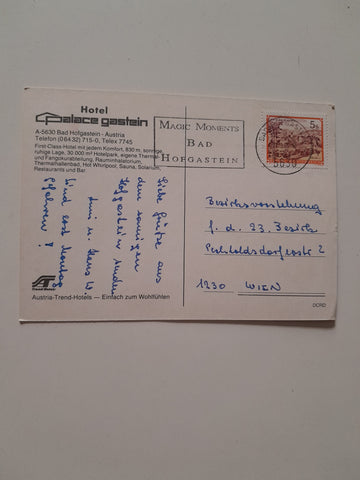 Hotel
palace gastein
A-5630 Bad Hofgastein - Austria
Telefon (06432) 715-0, Telex 7745
First-Class-Hotel mit jedem Komfort, 830 m, sonnige,
ruhige Lage. 30.000 m² Hotelpark, eigene Thermal-
und Fangokurabteilung, Rauminhalatorium,
Thermalhallenbad, Hot Whirlpool, Sauna, Solarium,
Restaurants und Bar.
MAGIC MOMENTS
BAD
HOFGASTEIN
5630
5 S
Liebe Grüße aus
dem sonnigen
Hofgastein senden
u. Hans W.
Sind erst Montag
gefahren!
Bezirksvorstehung
f. d. 23. Bezirk
Perchtoldsdorferstr. 2
1230 WIEN
AT
Trend Hotels
Austria-Trend-Hotels — Einfach zum Wohlfühlen
DORD